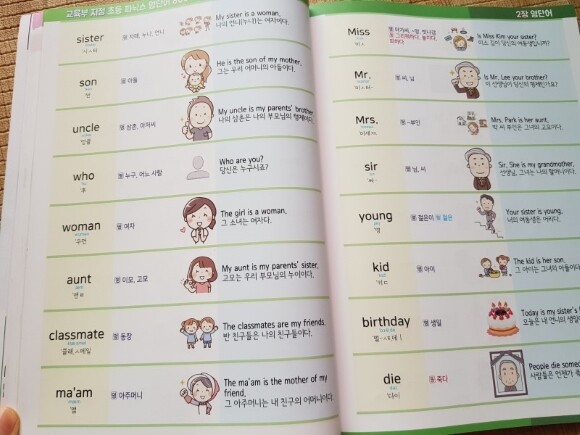 교육부 지정 초등 파닉스 영단어
sister
명 자매, 누나, 언니
My sister is a woman.
나의 언니(누나)는 여자이다.
son
명 아들
He is the son of my mother.
그는 우리 어머니의 아들이다.
uncle
명 삼촌, 아저씨
My uncle is my parents' brother
나의 삼촌은 나의 부모님의 형제이다.
who
대 누구, 어느 사람
Who are you?
당신은 누구시죠?
woman
명 여자
The girl is a woman.
그 소녀는 여자이다.
aunt
명 이모, 고모
My aunt is my parents' sister.
고모는 우리 부모님의 누이이다.
classmate
명 동창
The classmates are my friends.
반 친구들은 나의 친구들이다.
ma'am
명 아주머니
The ma'am is the mother of my
friend.
그 아주머니는 내 친구의 어머니이다.
2장 영단어
Miss
Is Miss Kim your sister?
미스 김이 당신의 여동생입니까?
Mr.
명 씨, 님
Is Mr. Lee your brother?
이 선생님이 당신의 형제인가요?
Mrs.
명 ~부인
Mrs. Park is her aunt.
박 씨 부인은 그녀의 고모이다.
sir
명 님, 씨
Sir, She is my grandmother.
선생님, 그녀는 나의 할머니이다.
young
명 젊은이 형 젊은
Your sister is young.
너의 여동생은 어리다.
kid
명 아이
The kid is her son.
그 아이는 그녀의 아들이다.
birthday
명 생일
Today is my sister's
오늘은 내 언니의 생일
die
동 죽다
People die some
사람들은 언젠가 죽